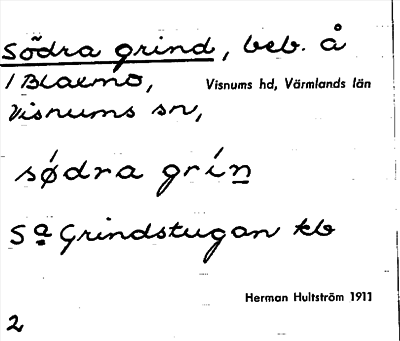 Södra grind, beb. å
1 Blaxmo,
Visnums hd, Värmlands län
Visnums sn,
sǿdra grín
Sa Grindstugan kb
Herman Hultström 1911
2